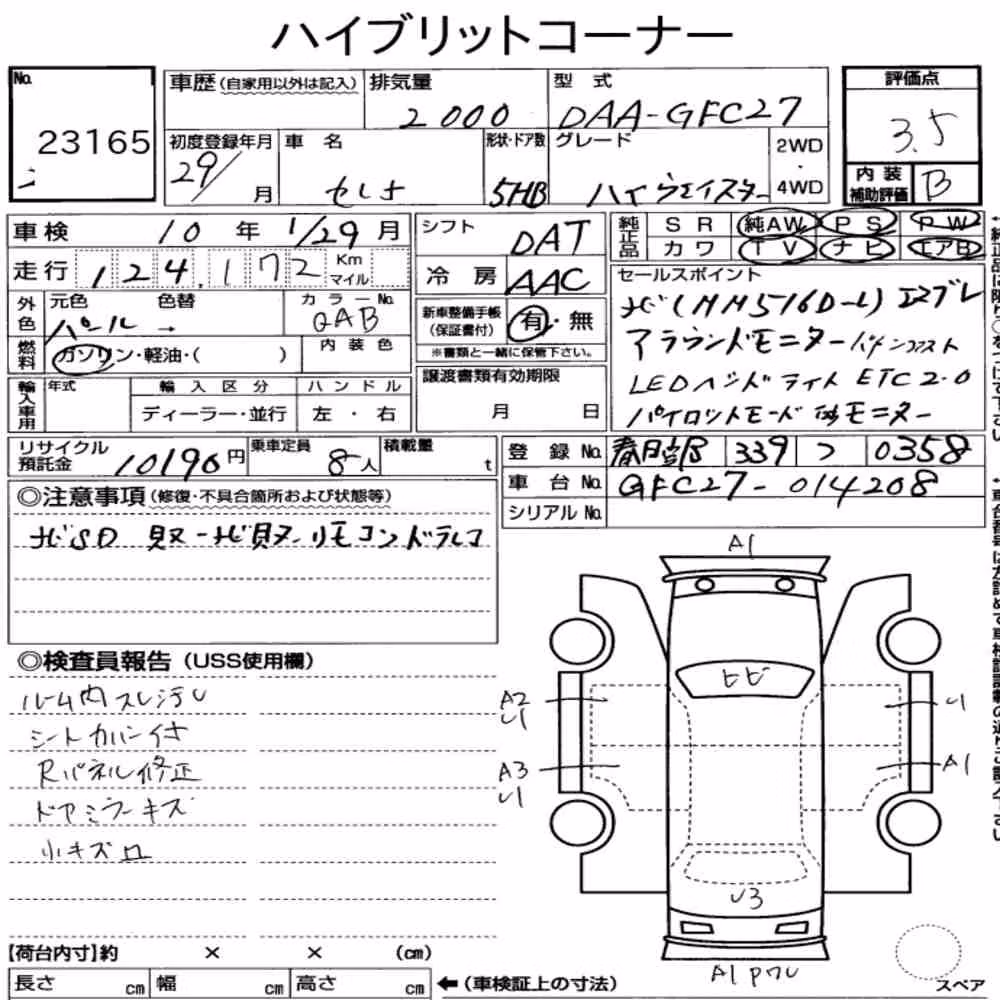 ハイブリットコーナー
No. 23165
車歴(自家用以外は記入)
排気量 2000
型式 DAA-GFC27
評価点 3.5
初度登録年月 29/ 月
車名 セレナ
形状・ドア数 5HB
グレード ハイウェイスター
2WD
・
4WD
内装補助評価 B
車検 10年 1/29月
走行 124,172 Km マイル
シフト DAT
冷房 AAC
純正品 SR 純AW PS PW
カワ TV ナビ エアB
外色 元色 色替 カラーNo.
パール → QAB
燃料 ガソリン・軽油・( )
内装色
新車整備手帳(保証書付) 有・無
※書類と一緒に保管下さい。
セールスポイント
ナビ(MM516D-L) エアブレ
アラウンドモニター インテリキー
LEDヘッドライト ETC2.0
パイロットモード
輸入車用 年式 輸入区分 ハンドル
ディーラー・並行 左・右
譲渡書類有効期限
月 日
リサイクル預託金 10190円
乗車定員 8人
積載量 t
登録No. 春日部 339 つ 0358
車台No. GFC27-014208
シリアルNo.
◎注意事項(修復・不具合箇所および状態等)
ナビSD 取 ナビ取 リモコン ドラレコ
◎検査員報告(USS使用欄)
ルーム内スレ汚レ
シートカバー付
Rパネル修正
ドアミラーキズ
小キズ
A1
ヒビ
A2
U1
A3
U1
U1
A1
U3
A1 Pワレ
【荷台内寸】約 × × (cm)
長さ cm 幅 cm 高さ cm
←(車検証上の寸法)
スペア